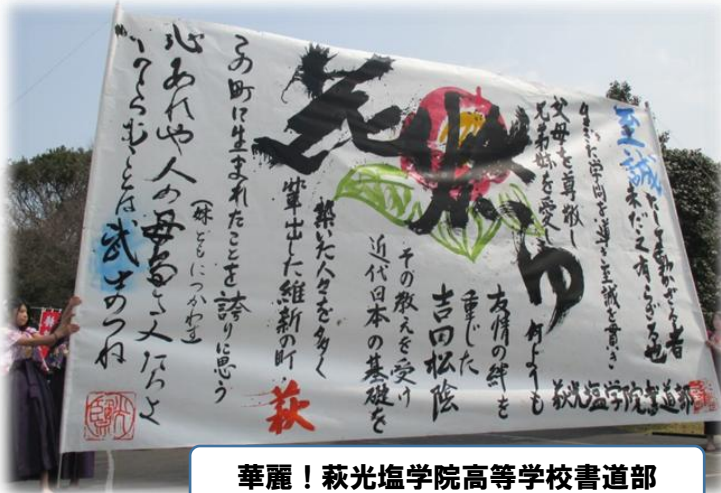 至誠にして動かざる者
未だ之有らざる也
学問を導き至誠を貫き
父母を尊敬し
兄弟妹を愛し
何よりも
友情の絆を
重じた
吉田松陰
萩光塩学院書道部
花燃ゆ
その教えを受け
近代日本の基礎を
築いた人々を多く
輩出した維新の町
萩
この町に生まれたことを誇りに思う
(妹どもにつかわす)
心あれや人の母たる人たちよ
かゝらむことは武士のつね
華麗!萩光塩学院高等学校書道部